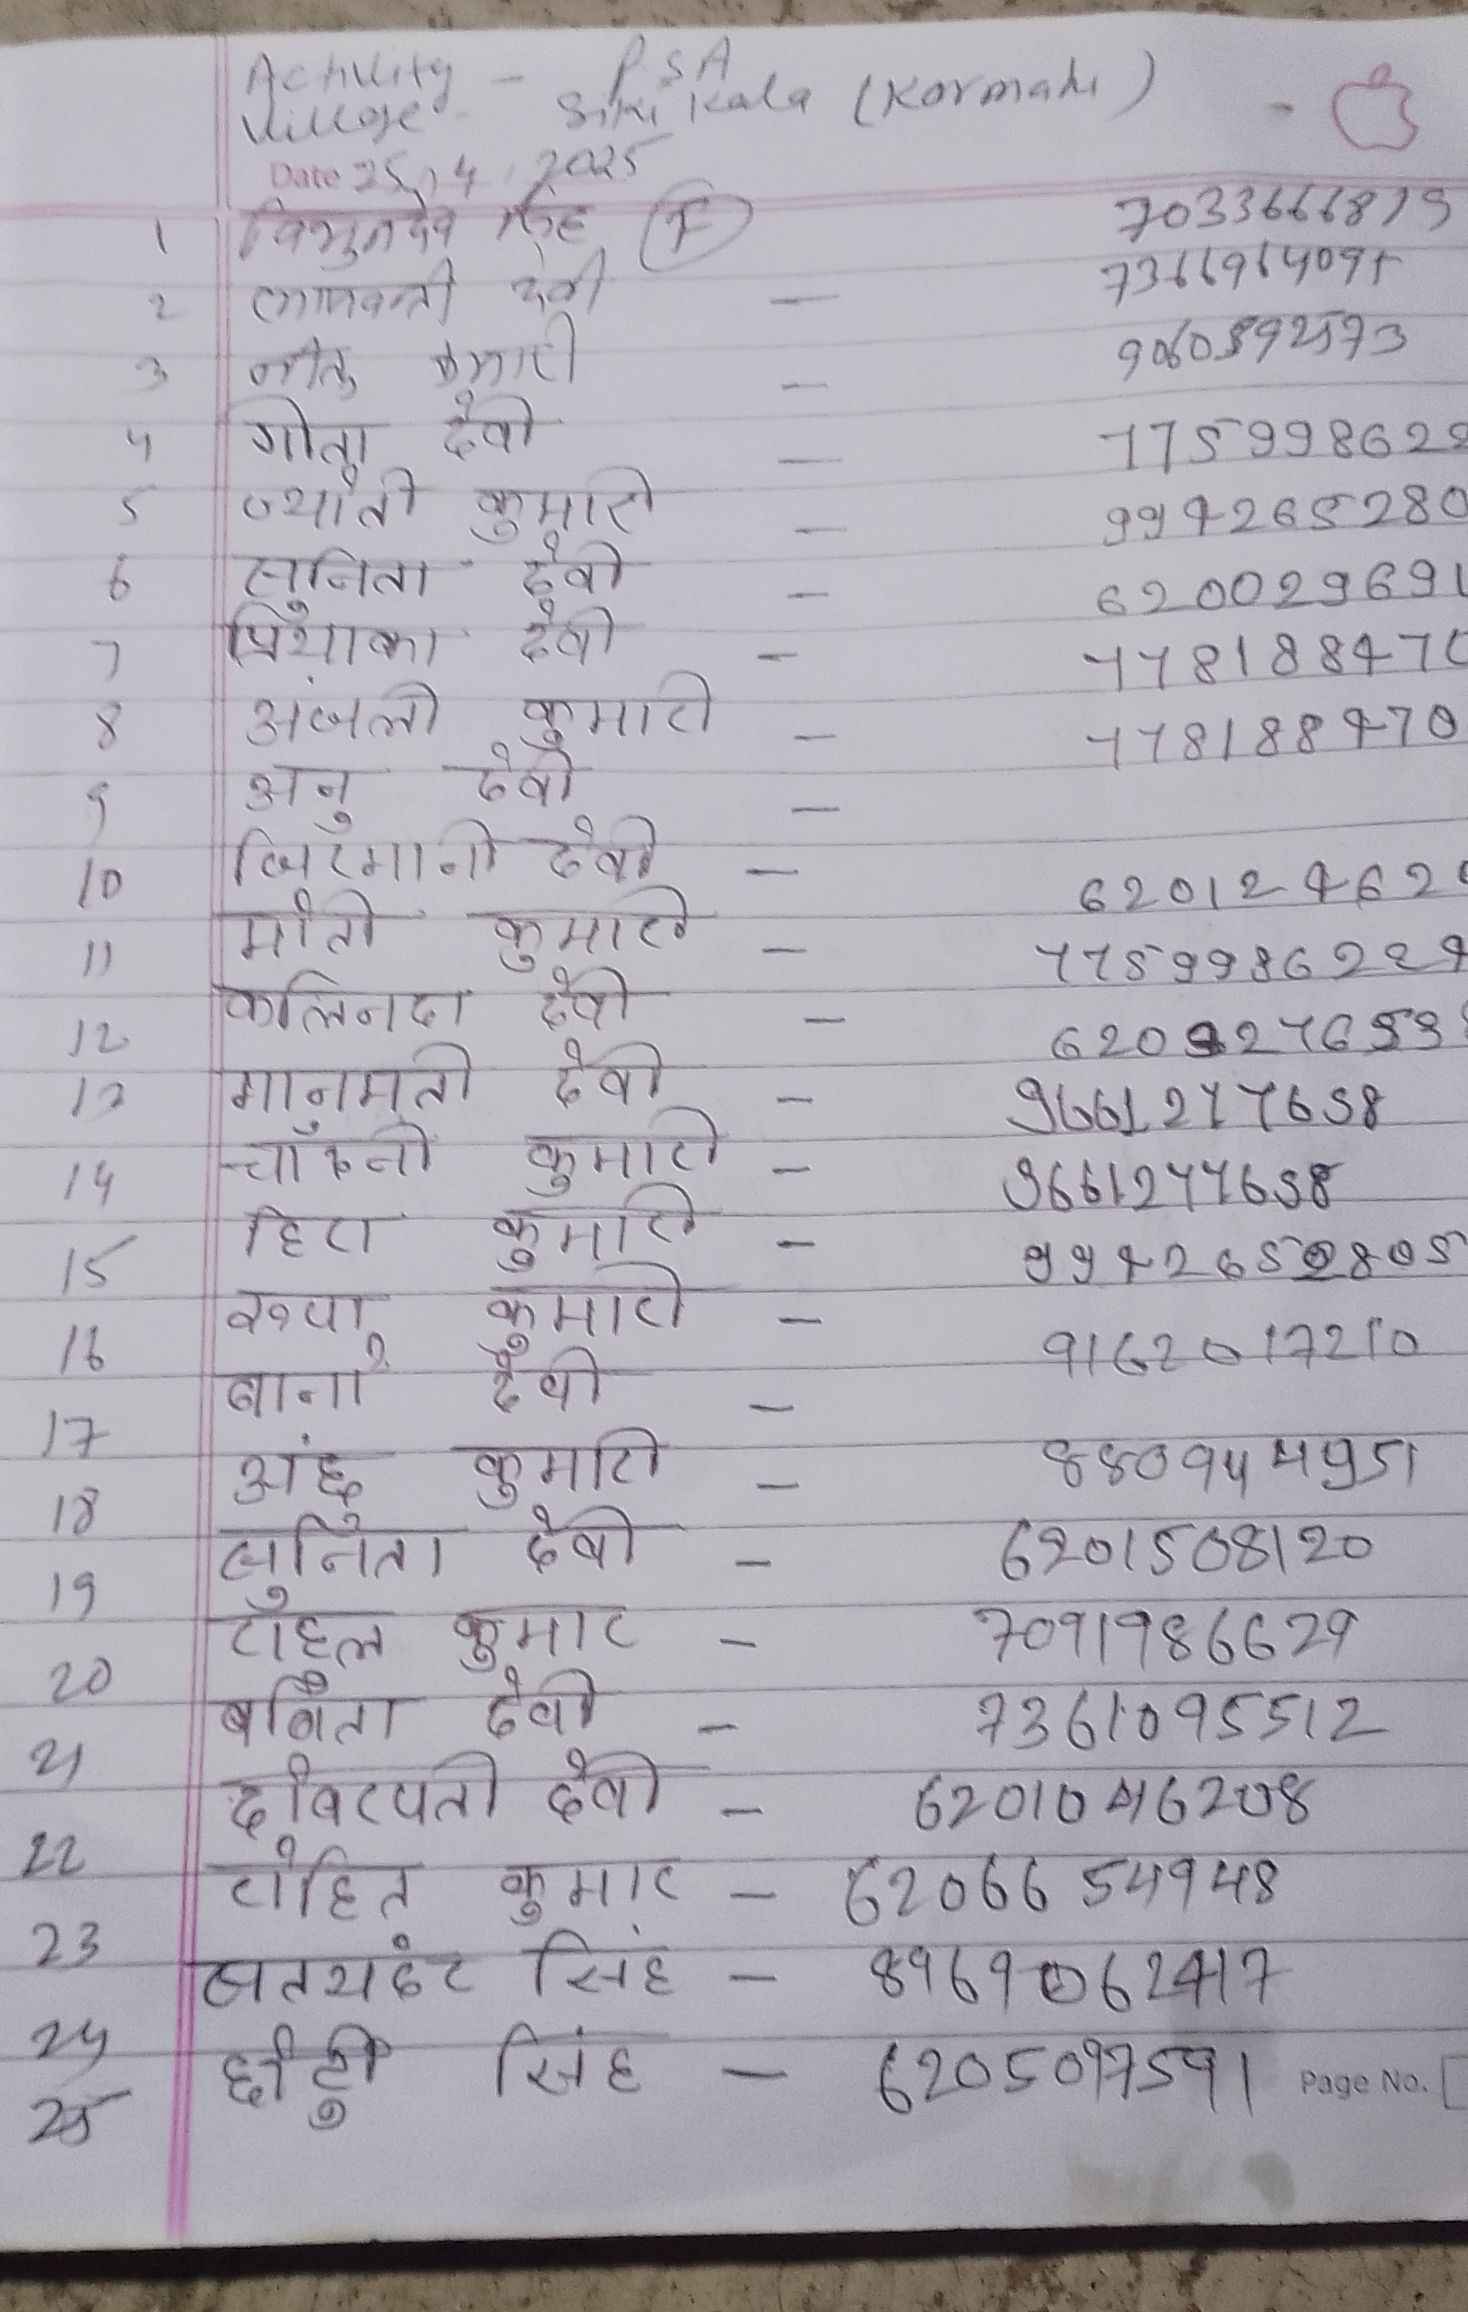 Activity - PSA
Village - Siki Kala (Kormahi)
Date 25.4.2025
1 सिंह (F) 7033666819
2 देवी - 736696409
3 नीतु कुमारी - 9060892573
4 गीता देवी - 775998622
5 ज्योती कुमारी - 994265280
6 सुनिता देवी - 620029691
7 प्रियाका देवी - 77818847
8 अंजली कुमारी - 778188470
9 अनु देवी -
10 देवी - 62012462
11 मोती कुमारी - 7759986224
12 कलिनदा देवी - 620
13 मानुमती देवी - 9661277658
14 चाँदनी कुमारी - 9661277658
15 हिरा कुमारी - 9942652805
16 रुपा कुमारी - 9162017210
17 बानो देवी -
18 अंछु कुमारी - 8809444951
19 सुनिता देवी - 6201508120
20 राहुल कुमार - 7091986629
21 बबिता देवी - 7361095512
22 देवी - 6201046208
23 रोहित कुमार - 6206654948
24 सिंह - 8969062417
25 छोटु सिंह - 6205097591
Page No.